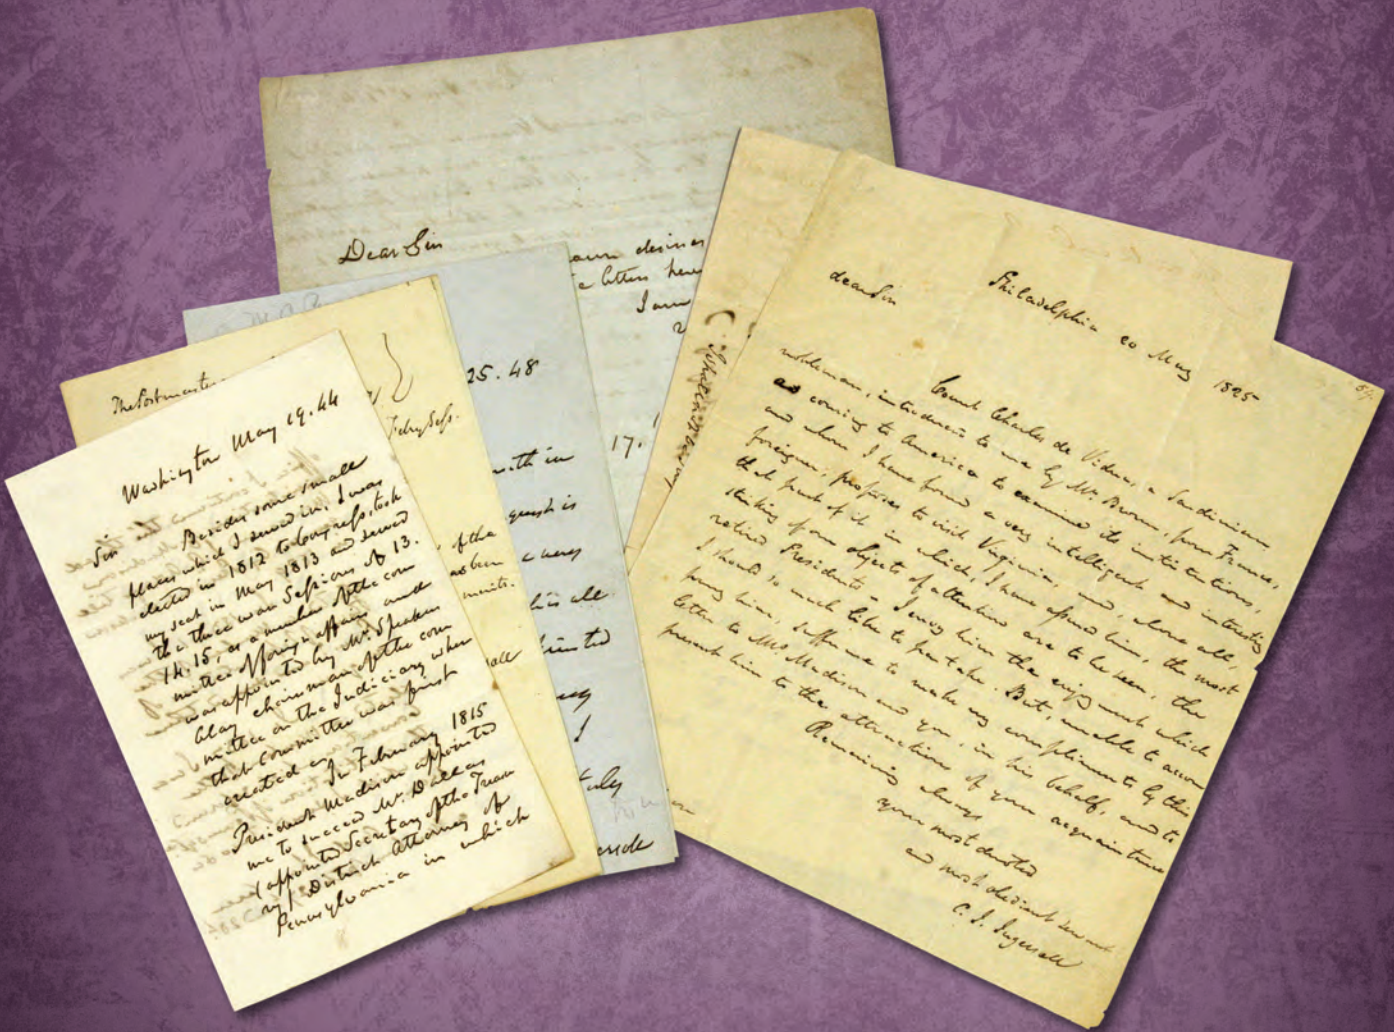 Dear Sir
desires
letters here
I am
17.
25. 48
with in
is
a very
his all.
I
The Postmaster
of the
has been
Washington May 19. 44
Sir Besides some small
places which I served in, I was
elected in 1812 to Congress, took
my seat in May 1813 and served
the three war Sessions of 13.
14. 15, as a member of the com
mittee of foreign affairs and
was appointed by Mr. Speaker
Clay chairman of the com
mittee on the Judiciary when
that Committee was first
created
In February 1815
President Madison appointed
me to succeed Mr. Dallas
(appointed Secretary of the Treasu
ry) District Attorney of
Pennsylvania in which
Philadelphia 20 May 1825
dear Sir
Count Charles de Vidua, a Sardinian
nobleman, introduced to me by Mr. Brown, from France,
as coming to America to examine its institutions,
and whom I have found a very intelligent and interesting
foreigner, proposes to visit Virginia, and, above all,
that part of it in which, I have assured him, the most
striking of our objects of attention are to be seen, the
retired Presidents - I envy him the enjoyment which
I should so much like to partake. But, unable to accom
pany him, suffer me to make my compliments by this
letter to Mrs Madison and you, in his behalf, and to
present him to the attractions of your acquaintance
Remaining always
your most devoted
and most obedient servant
C. J. Ingersoll